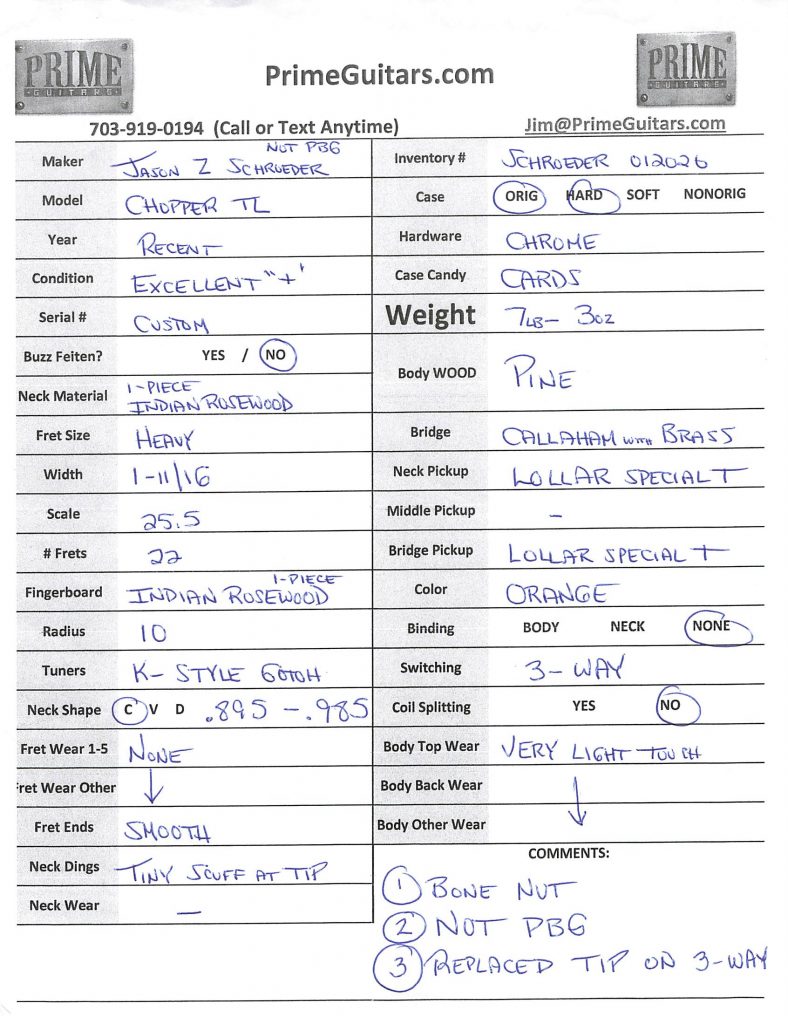 PRIME
GUITARS
PrimeGuitars.com
PRIME
GUITARS
703-919-0194 (Call or Text Anytime)
Jim@PrimeGuitars.com
NOT PBG
Maker JASON Z SCHROEDER
Model CHOPPER TL
Year RECENT
Condition EXCELLENT "+"
Serial # CUSTOM
Buzz Feiten? YES / NO
Neck Material 1-PIECE
INDIAN ROSEWOOD
Fret Size HEAVY
Width 1-11/16
Scale 25.5
# Frets 22
1-PIECE
Fingerboard INDIAN ROSEWOOD
Radius 10
Tuners K-STYLE GOTOH
Neck Shape C V D .895 - .985
Fret Wear 1-5 NONE
Fret Wear Other ↓
Fret Ends SMOOTH
Neck Dings TINY SCUFF AT TIP
Neck Wear —
Inventory # SCHROEDER 012026
Case ORIG HARD SOFT NONORIG
Hardware CHROME
Case Candy CARDS
Weight 7LB- 3OZ
Body WOOD PINE
Bridge CALLAHAM WITH BRASS
Neck Pickup LOLLAR SPECIAL T
Middle Pickup –
Bridge Pickup LOLLAR SPECIAL T
Color ORANGE
Binding BODY NECK NONE
Switching 3-WAY
Coil Splitting YES NO
Body Top Wear VERY LIGHT TOUCH
Body Back Wear ↓
Body Other Wear
COMMENTS:
1 BONE NUT
2 NOT PBG
3 REPLACED TIP ON 3-WAY